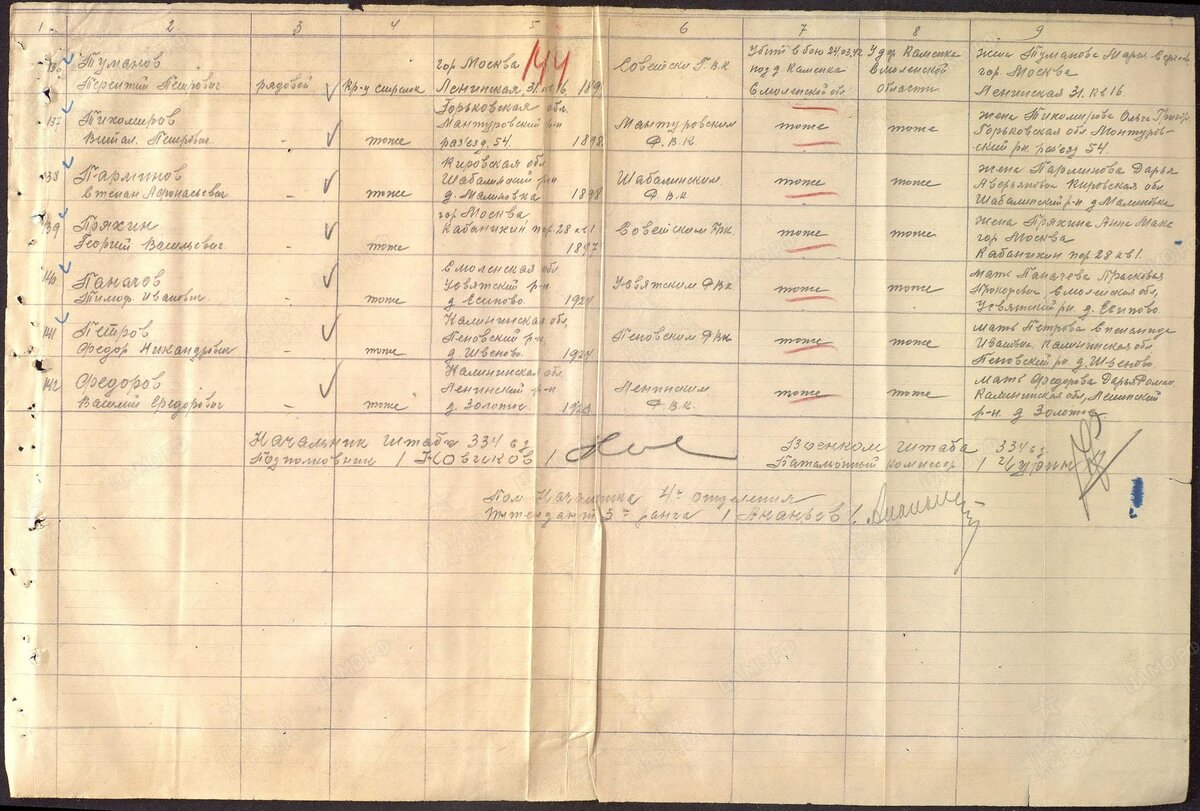 1 2 3 4 5 6 7 8 9
144
Туманов гор Москва Советски Г.В.К Убит в бою 24.03.42 У дер Каменка жена Туманова Мар
Петрович рядовой Кр-ц стрелок Ленинская 31 кв 16 под д Каменка Смоленской гор Москва
Смоленской обл области Ленинская 31. кв 16.
137 Тихомиров Горьковская обл. жена Тихомирова Ольга Григор
Мантуровский р-н Мантуровским тоже тоже Горьковская обл. Монтуров-
Витал. Петрович - тоже раз'езд 54. 1898 Р.В.К ский рн. раз'езд 54.
138 Парминов Кировская обл жена Парминова Дарья
Шабалинский р-н Шабалинским тоже тоже Аверьяновна Кировская обл
Степан Афонасьевич - тоже д. Малиновка 1898 Р.В.К Шабалинский р-н д Малиновка
139 Пряхин гор Москва жена Пряхина Анна Макс
Кабанихин пер. 28 кв 1 Советским Грк тоже тоже гор Москва
Георгий Васильевич - тоже 1897 Кабанихин пер 28 кв 1.
140 Паначев Смоленская обл мать Паначева Прасковья
Усвятский р-н Усвятским Рвк тоже тоже Смоленская обл,
Тимоф. Иванович. - тоже д Есипово 1924 Усвятский рн д. Есипово
141 Петров Калининская обл, мать Петрова
Пеновский р-н. Пеновским Рвк тоже тоже Ивановна. Калининская обл
Федор Никандрович - тоже д. Швеново 1924 Пеновский рн. д. Швеново
142 Федоров Калининская обл. мать Федорова Дарья Роман
Ленинский р-н Ленинским тоже тоже Калининская обл, Ленинский
Василий Федорович - тоже д. Золотое Р.В.К. р-н д Золотое
Начальник штаба 334 сд Военком штаба 334 сд
Подполковник / Новиков / Батальонный комиссар / Чурин
Пом Начальника 4го отделения
Интендант 3го ранга / Ананьев /